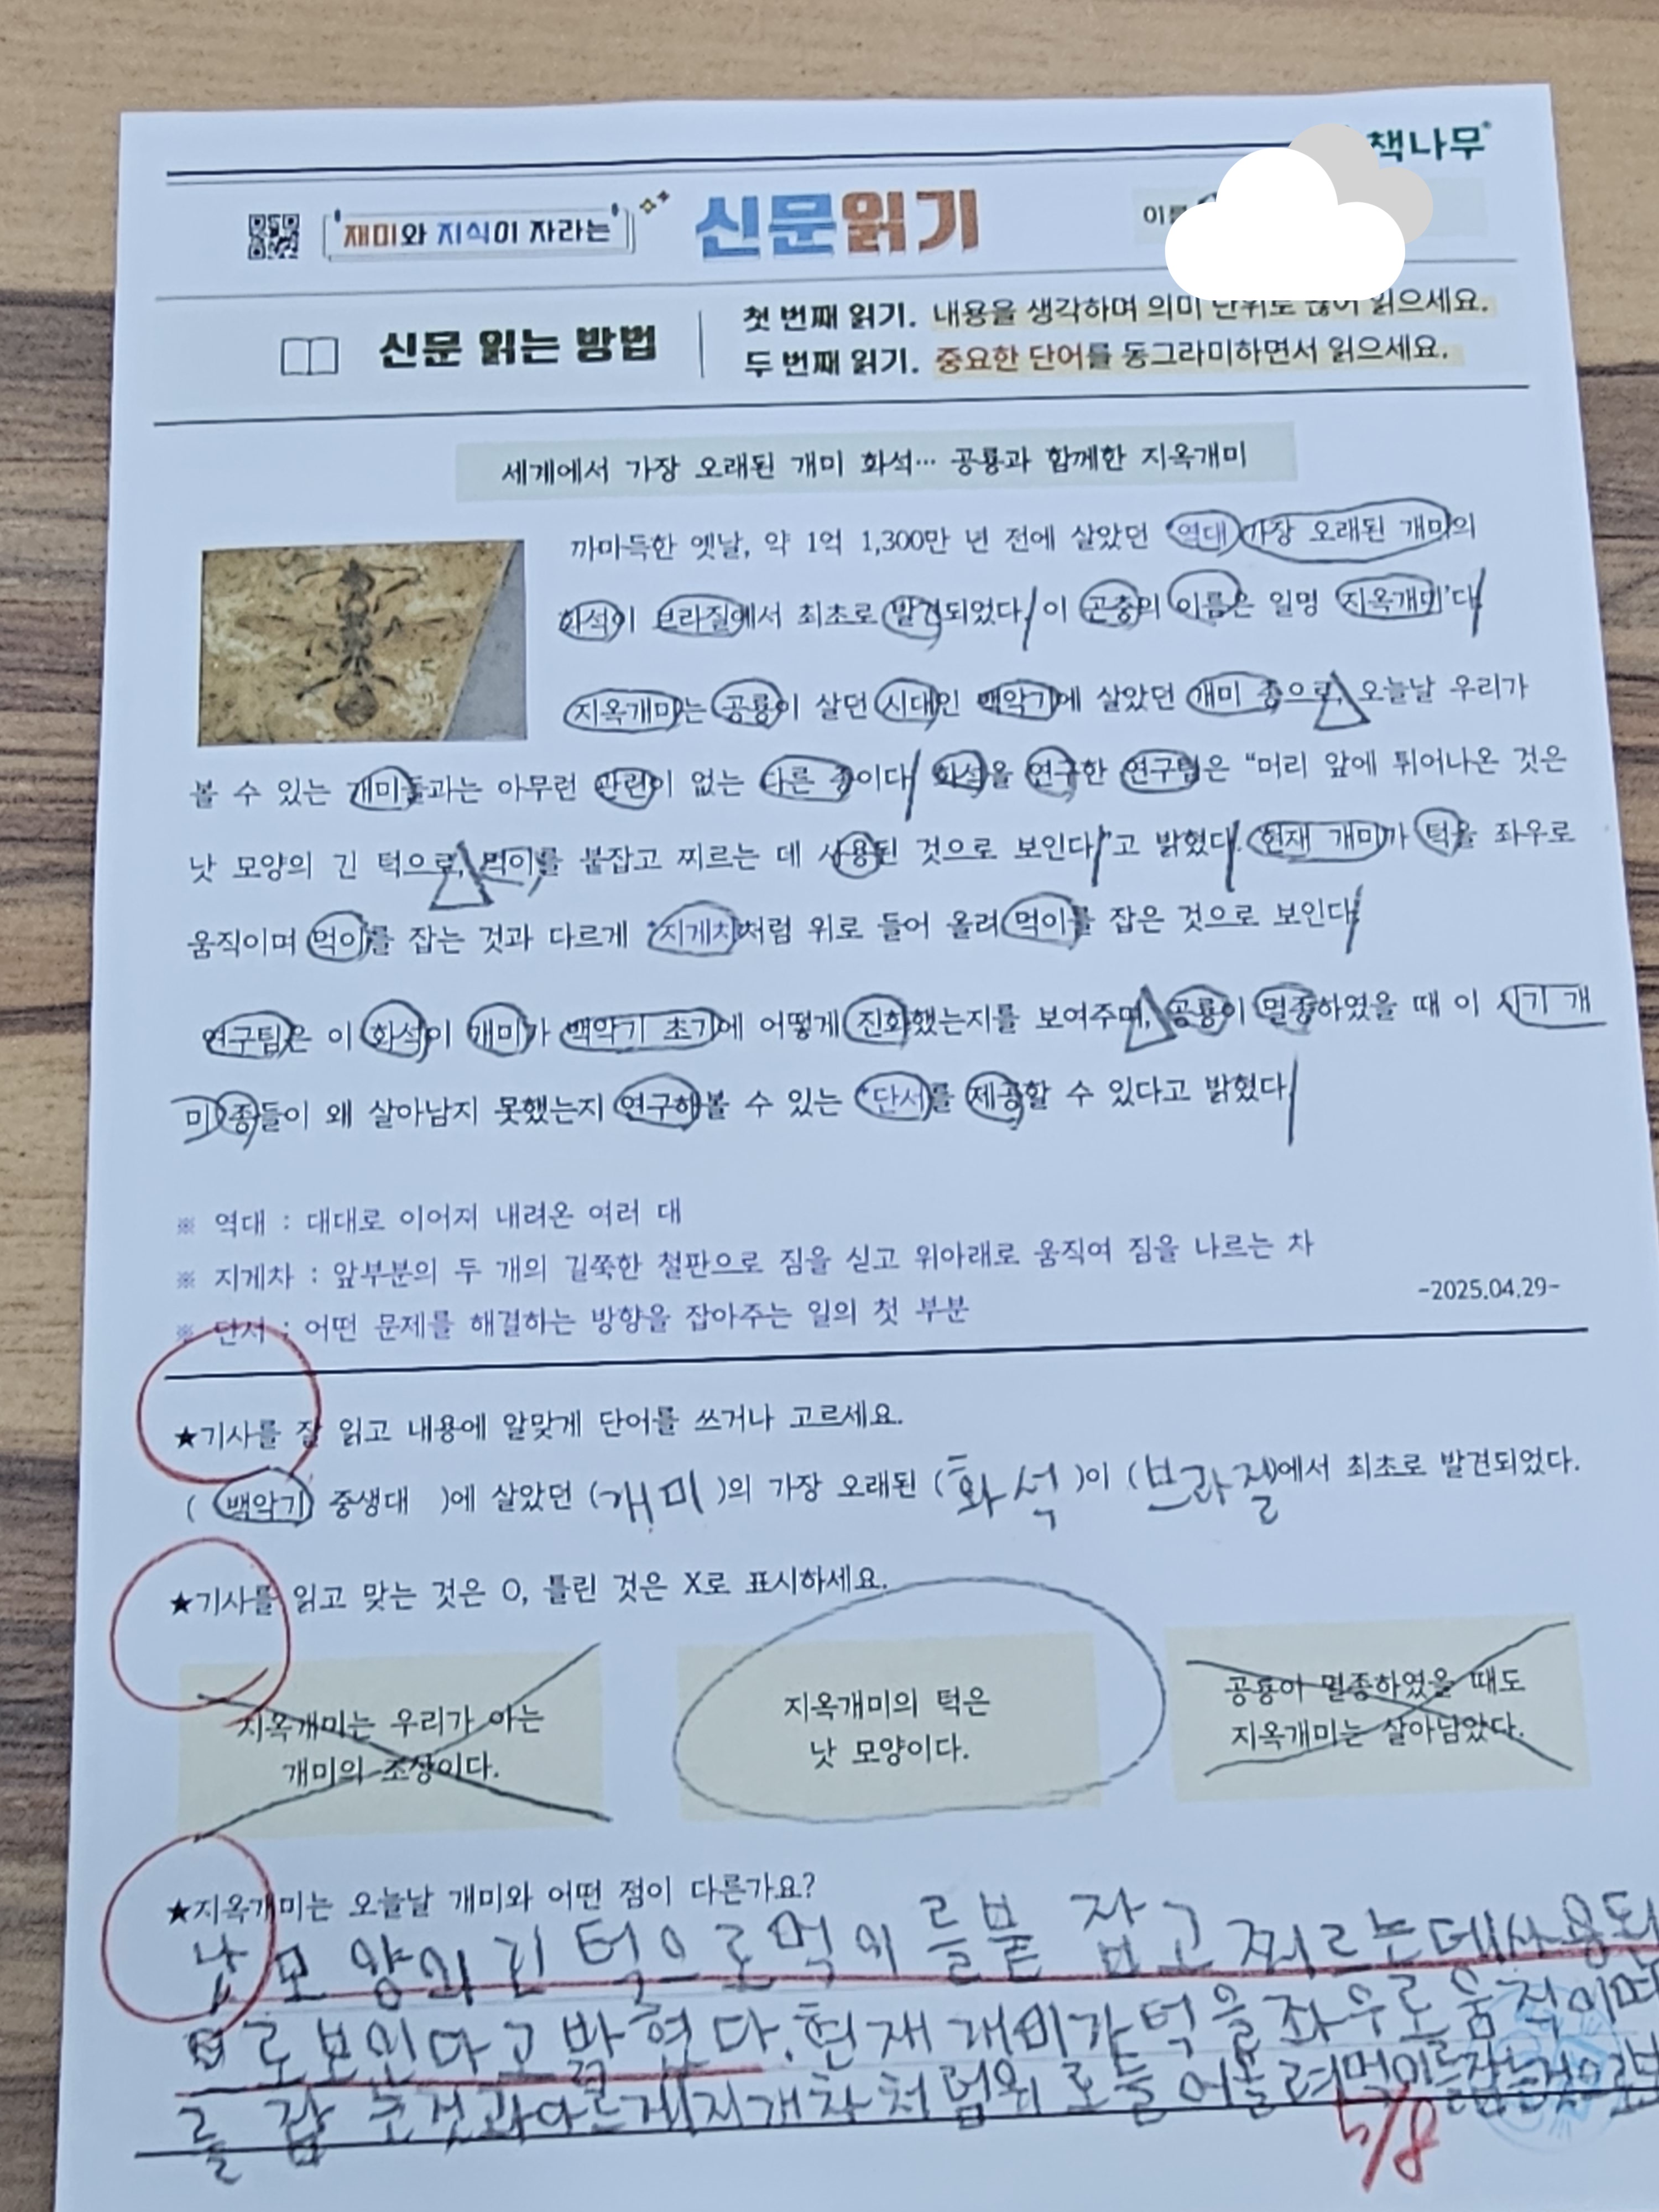 책나무
재미와 지식이 자라는 신문읽기
신문 읽는 방법
첫 번째 읽기. 내용을 생각하며 의미 단위로 끊어 읽으세요.
두 번째 읽기. 중요한 단어를 동그라미하면서 읽으세요.
세계에서 가장 오래된 개미 화석… 공룡과 함께한 지옥개미
까마득한 옛날, 약 1억 1,300만 년 전에 살았던 *역대 가장 오래된 개미의
화석이 브라질에서 최초로 발견되었다. 이 곤충의 이름은 일명 '지옥개미'다.
지옥개미는 공룡이 살던 시대인 백악기에 살았던 개미 종으로, 오늘날 우리가
볼 수 있는 개미들과는 아무런 관련이 없는 다른 종이다. 화석을 연구한 연구팀은 “머리 앞에 튀어나온 것은
낫 모양의 긴 턱으로, 먹이를 붙잡고 찌르는 데 사용된 것으로 보인다.”고 밝혔다. 현재 개미가 턱을 좌우로
움직이며 먹이를 잡는 것과 다르게 *지게차처럼 위로 들어 올려 먹이를 잡은 것으로 보인다.
연구팀은 이 화석이 개미가 백악기 초기에 어떻게 진화했는지를 보여주며, 공룡이 멸종하였을 때 이 시기 개
미 종들이 왜 살아남지 못했는지 연구해볼 수 있는 *단서를 제공할 수 있다고 밝혔다.
※ 역대 : 대대로 이어져 내려온 여러 대
※ 지게차 : 앞부분의 두 개의 길쭉한 철판으로 짐을 싣고 위아래로 움직여 짐을 나르는 차
※ 단서 : 어떤 문제를 해결하는 방향을 잡아주는 일의 첫 부분
-2025.04.29-
★기사를 잘 읽고 내용에 알맞게 단어를 쓰거나 고르세요.
( 백악기 중생대 )에 살았던 (개미)의 가장 오래된 (화석)이 (브라질)에서 최초로 발견되었다.
★기사를 읽고 맞는 것은 O, 틀린 것은 X로 표시하세요.
지옥개미는 우리가 아는
개미의 조상이다.
지옥개미의 턱은
낫 모양이다.
공룡이 멸종하였을 때도
지옥개미는 살아남았다.
★지옥개미는 오늘날 개미와 어떤 점이 다른가요?
낫 모양의 긴 턱으로 먹이를 붙잡고 찌르는데 사용된
로 보인다고 밝혔다. 현재 개미가 턱을 좌우로 움직이며
를 잡는것과 다르게 지개차처럼 위로 들어올려 먹이를 잡는것으로